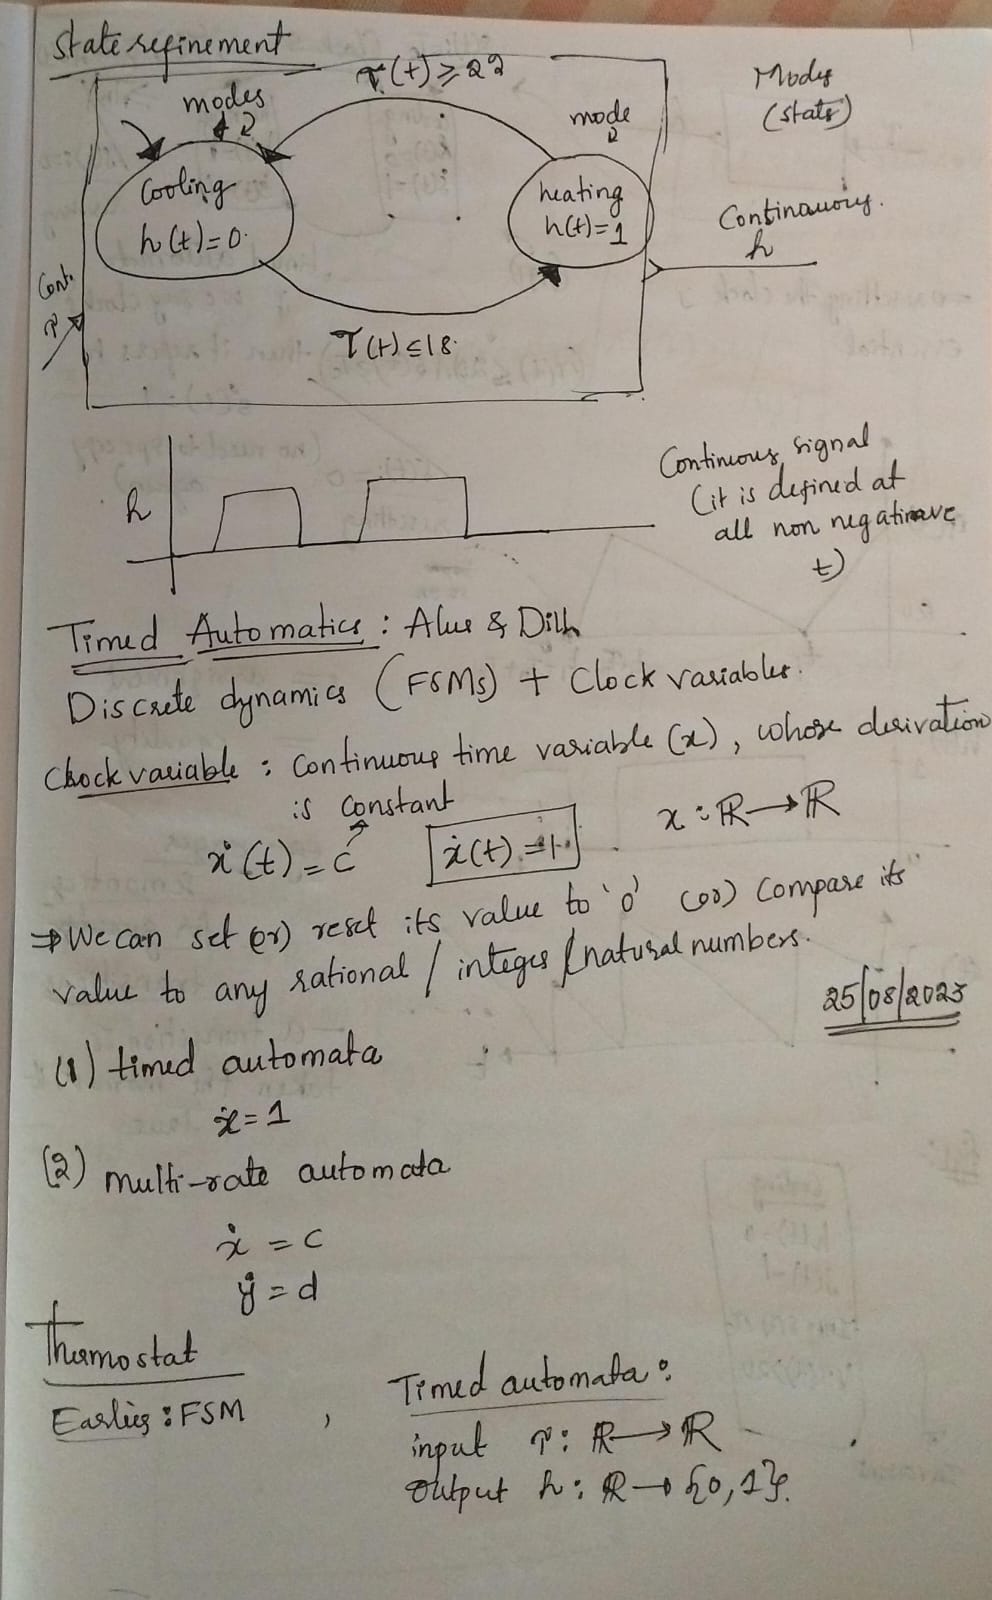 State refinement
τ(t) ≥ 22
modes
mode
Modes
(state)
Cooling
h(t)=0
heating
h(t)=1
Continauous.
h
Cont.
τ
τ(t) ≤ 18
h
Continuous signal
(it is defined at
all non negatinave
t)
Timed Automatics : Alur & Dill
Discrete dynamics (FSMs) + Clock variables.
Clock variable : Continuous time variable (x), whose derivation
is constant
ẋ(t) = c
ẋ(t) = 1
x : ℝ → ℝ
⇒ We can set (or) reset its value to '0' (or) Compare its
value to any rational / integer / natural numbers.
25/08/2023
(1) timed automata
ẋ = 1
(2) multi-rate automata
ẋ = c
ẏ = d
Thermostat
Earlier : FSM ,
Timed automata :
input τ : ℝ → ℝ
Output h : ℝ → {0,1}.